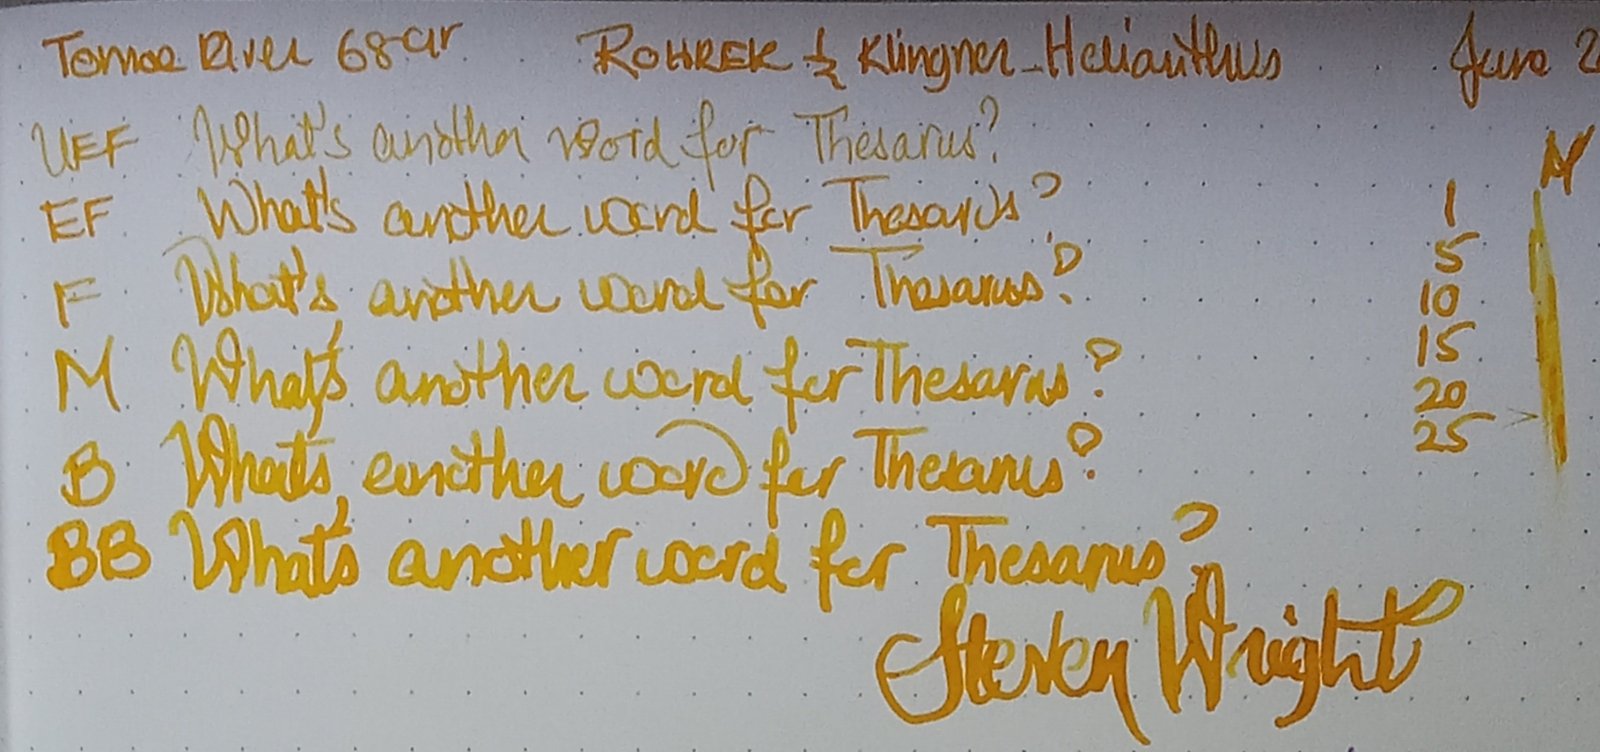 Tomoe River 68gr Rohrer & Klingner - Helianthus June 2
UEF What's another word for Thesarus? M
EF What's another word for Thesarus? 1
F What's another word for Thesarus? 5
10
M What's another word for Thesarus? 15
20
B What's another word for Thesarus? 25
BB What's another word for Thesarus?
Steven Wright